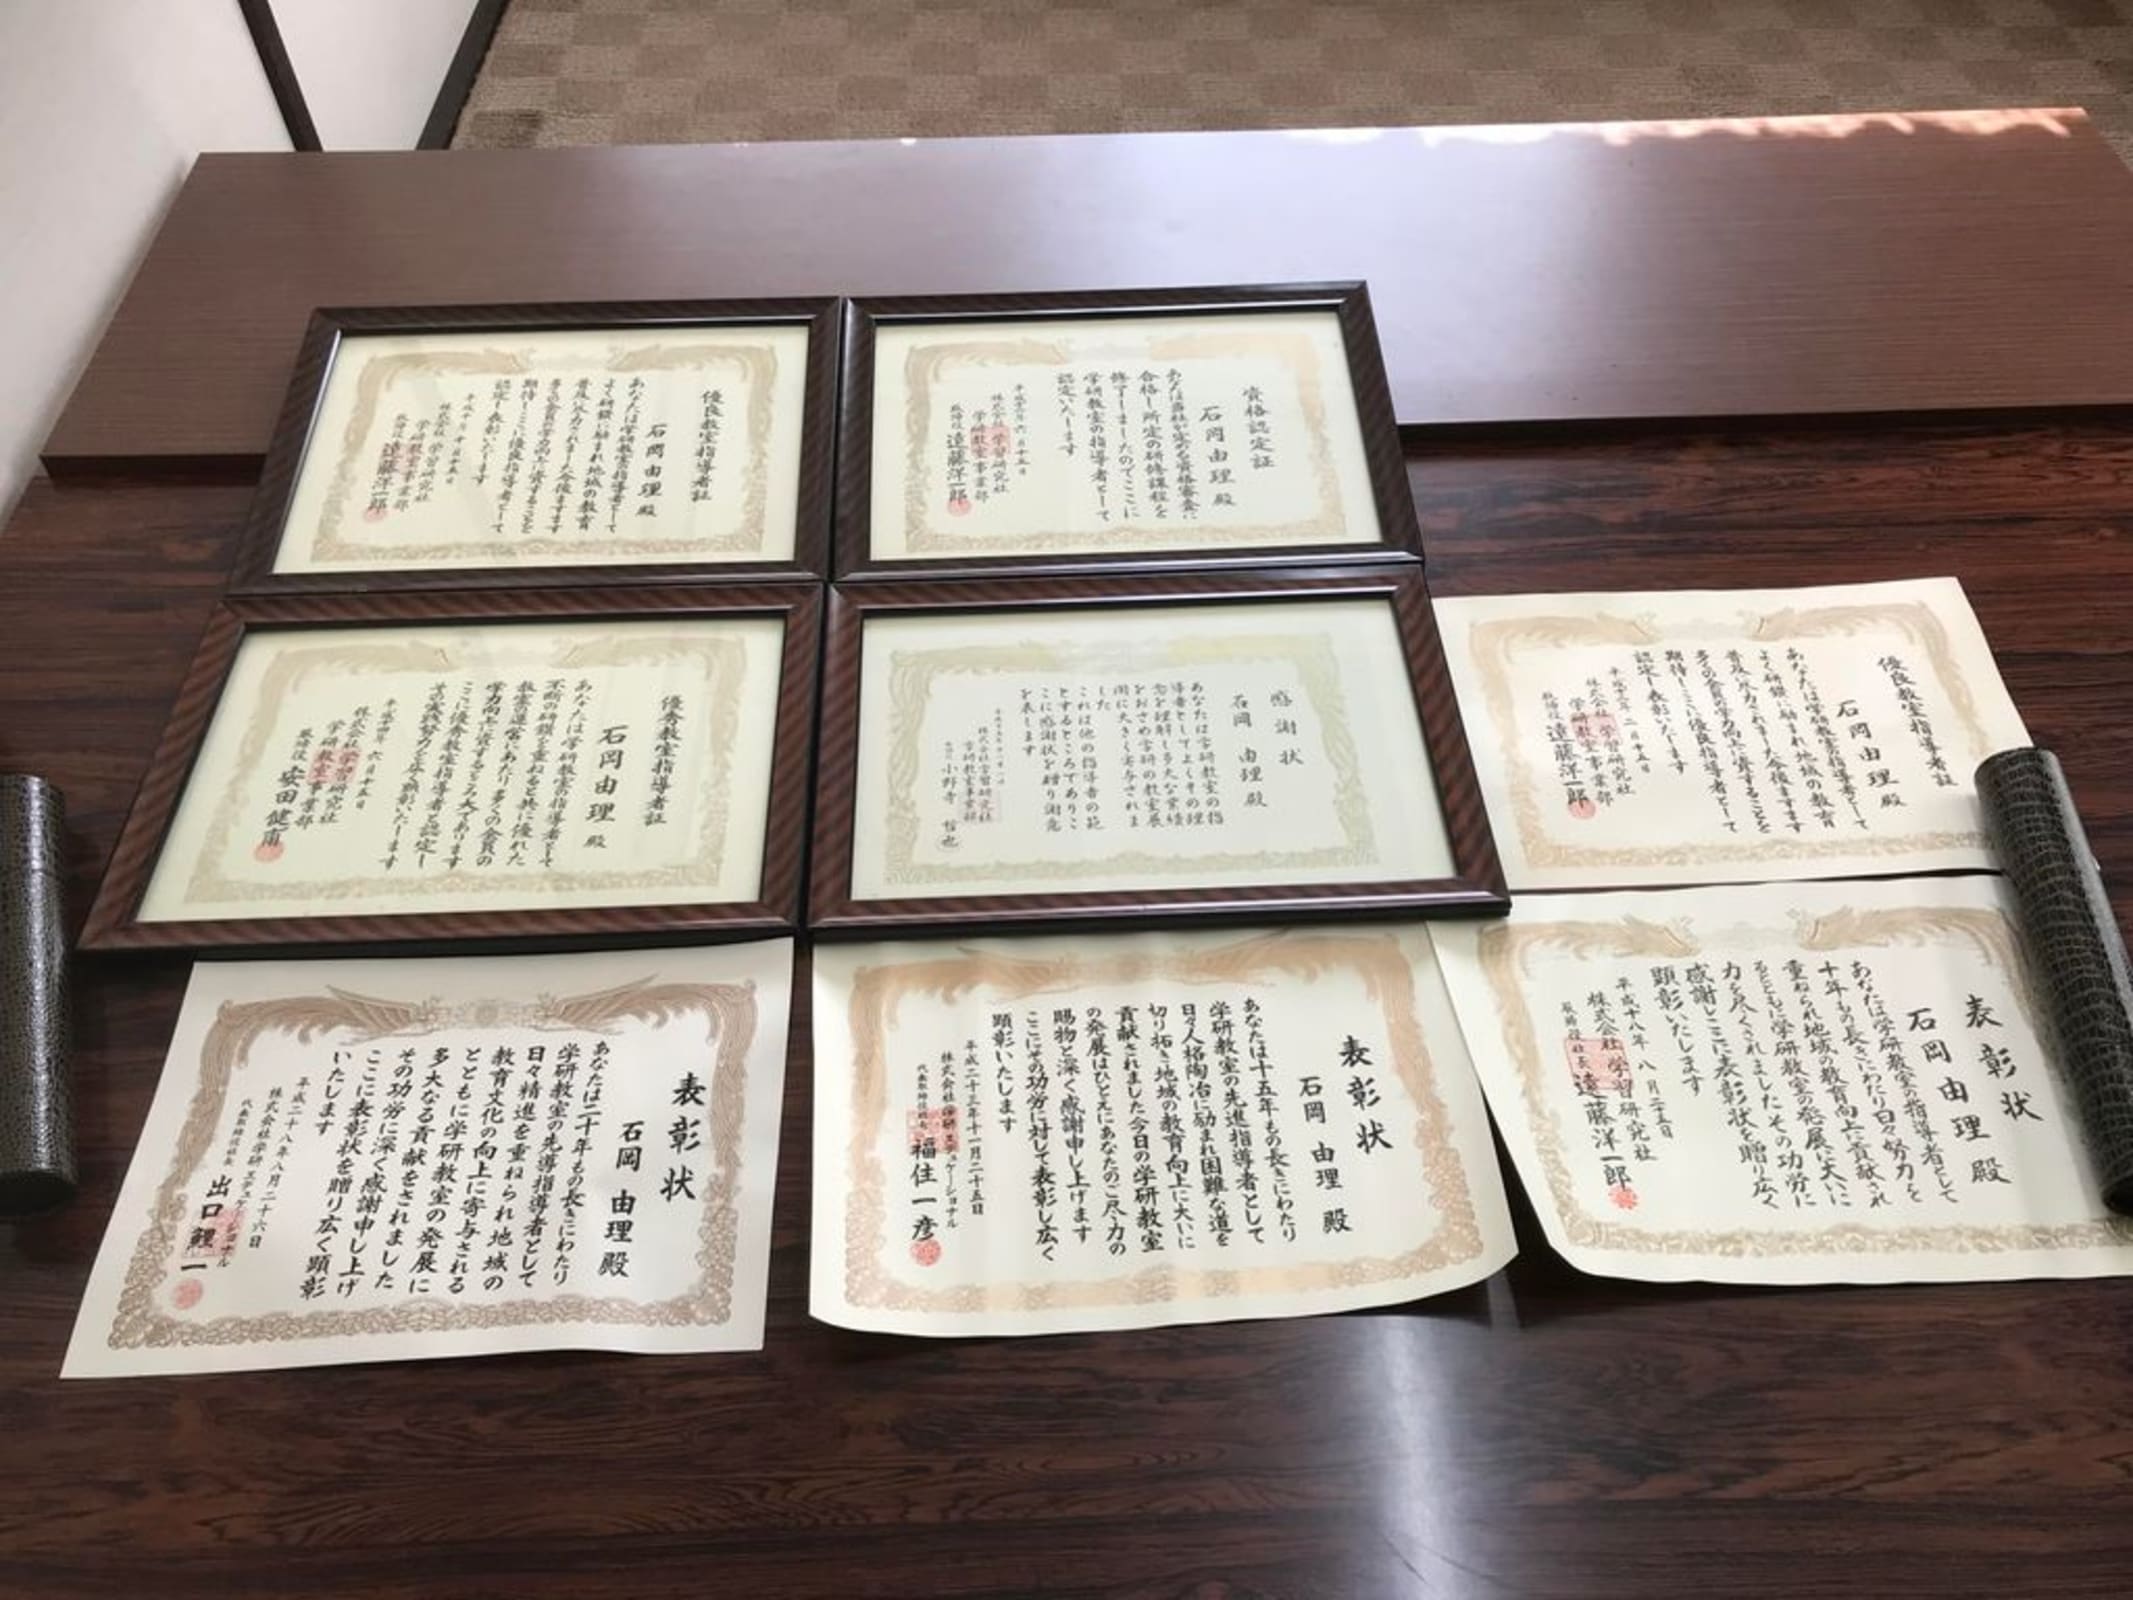 優良教室指導者証
石岡由理殿
あなたは学研教室の指導者として
よく研鑽に励まれ地域の教育
普及に尽力されました今後ますます
多くの会員の学力向上に資することを
期待しここに優良指導者として
認定し表彰いたします
平成十年十月十五日
株式会社学習研究社
学研教室事業部
取締役 遠藤洋一郎
資格認定証
石岡由理殿
あなたは当社が定める資格審査に
合格し所定の研修課程を
修了しましたのでここに
学研教室の指導者として
認定いたします
六月十五日
株式会社学習研究社
学研教室事業部
取締役 遠藤洋一郎
優秀教室指導者証
石岡由理殿
あなたは学研教室の指導者として
不断の研鑽を重ねると共に優れた
教室の運営にあたり多くの会員の
学力向上に資するところ大であります
ここに優秀教室指導者と認定し
その実践努力を広く顕彰いたします
平成十四年六月十五日
株式会社学習研究社
学研教室事業部
取締役 安田健甫
感謝状
石岡由理殿
あなたは学研教室の指
導者としてよくその理
念を理解し多大な業績
をおさめ学研の教室展
開に大きく寄与されま
した
これは他の指導者の範
とするところでありこ
こに感謝状を贈り謝意
を表します
株式会社学習研究社
学研教室事業部
小野寺哲也
優良教室指導者証
石岡由理殿
あなたは学研教室の指導者として
よく研鑽に励まれ地域の教育
普及に尽力されました今後ますます
多くの会員の学力向上に資することを
期待しここに優良指導者として
認定し表彰いたします
二月十五日
株式会社学習研究社
学研教室事業部
取締役 遠藤洋一郎
表彰状
石岡由理殿
あなたは二十年もの長きにわたり
学研教室の先導指導者として
日々精進を重ねられ地域の
教育文化の向上に寄与される
とともに学研教室の発展に
多大なる貢献をされました
その功労に深く感謝申し上げ
ここに表彰状を贈り広く顕彰
いたします
平成二十八年八月二十六日
株式会社学研エデュケーショナル
代表取締役社長 出口鯉一
表彰状
石岡由理殿
あなたは十五年もの長きにわたり
学研教室の先進指導者として
日々人格陶冶に励まれ困難な道を
切り拓き地域の教育向上に大いに
貢献されました今日の学研教室
の発展はひとえにあなたのご尽力の
賜物と深く感謝申し上げます
ここにその功労に対して表彰し広く
顕彰いたします
平成二十三年十一月二十五日
株式会社学研エデュケーショナル
代表取締役社長 福住一彦
表彰状
石岡由理殿
あなたは学研教室の指導者として
十年もの長きにわたり日々努力を
重ねられ地域の教育向上に貢献され
るとともに学研教室の発展に大いに
力を尽くされましたその功労に
感謝しここに表彰状を贈り広く
顕彰いたします
平成十八年八月二十五日
株式会社学習研究社
取締役社長 遠藤洋一郎